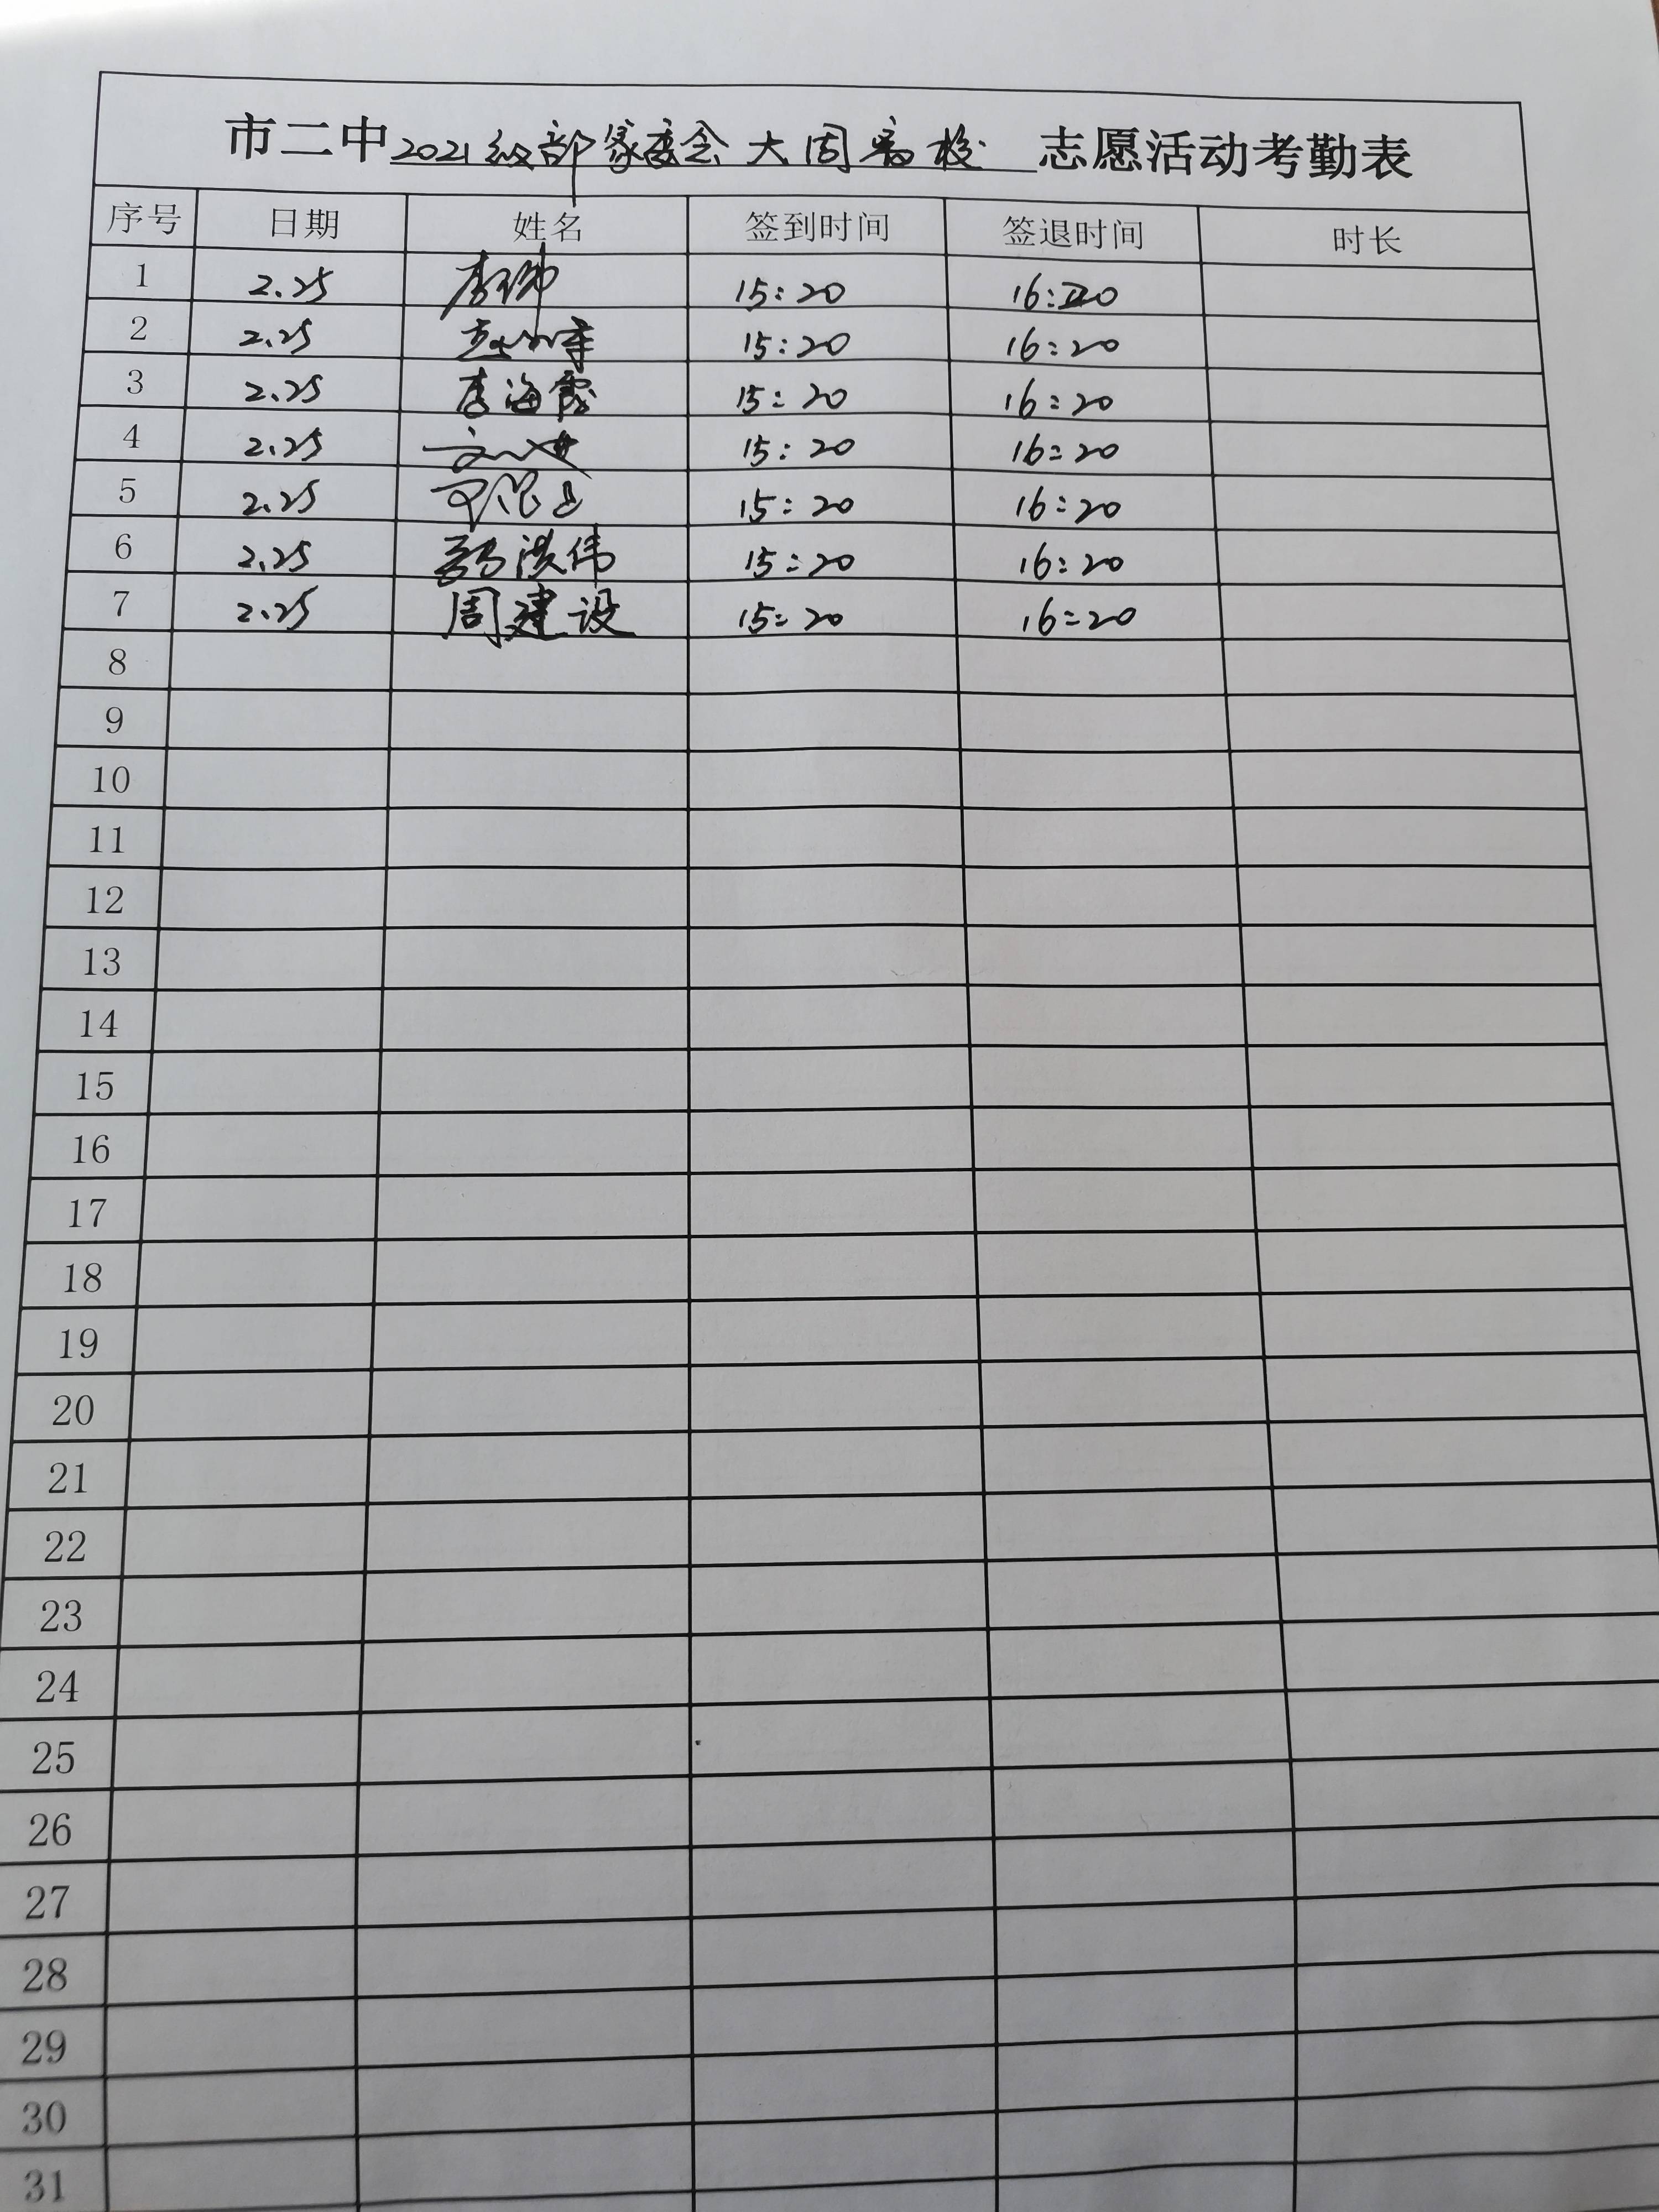 市二中2021级部家委会大周离校志愿活动考勤表
序号 日期 姓名 签到时间 签退时间 时长
1 2.25 15:20 16:20
2 2.25 15:20 16:20
3 2.25 李海霞 15:20 16:20
4 2.25 15:20 16:20
5 2.25 15:20 16:20
6 2.25 洪伟 15:20 16:20
7 2.25 周建设 15:20 16:20
8
9
10
11
12
13
14
15
16
17
18
19
20
21
22
23
24
25
26
27
28
29
30
31